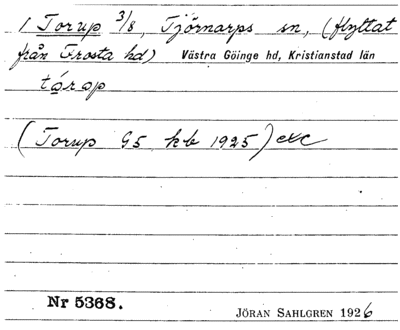 1 Torup 3/8, Tjörnarps sn, (flyttat
från Frosta hd) Västra Göinge hd, Kristianstad län
tórop
(Torup G5 kb 1925) exc
Nr 5368.
JÖRAN SAHLGREN 1926